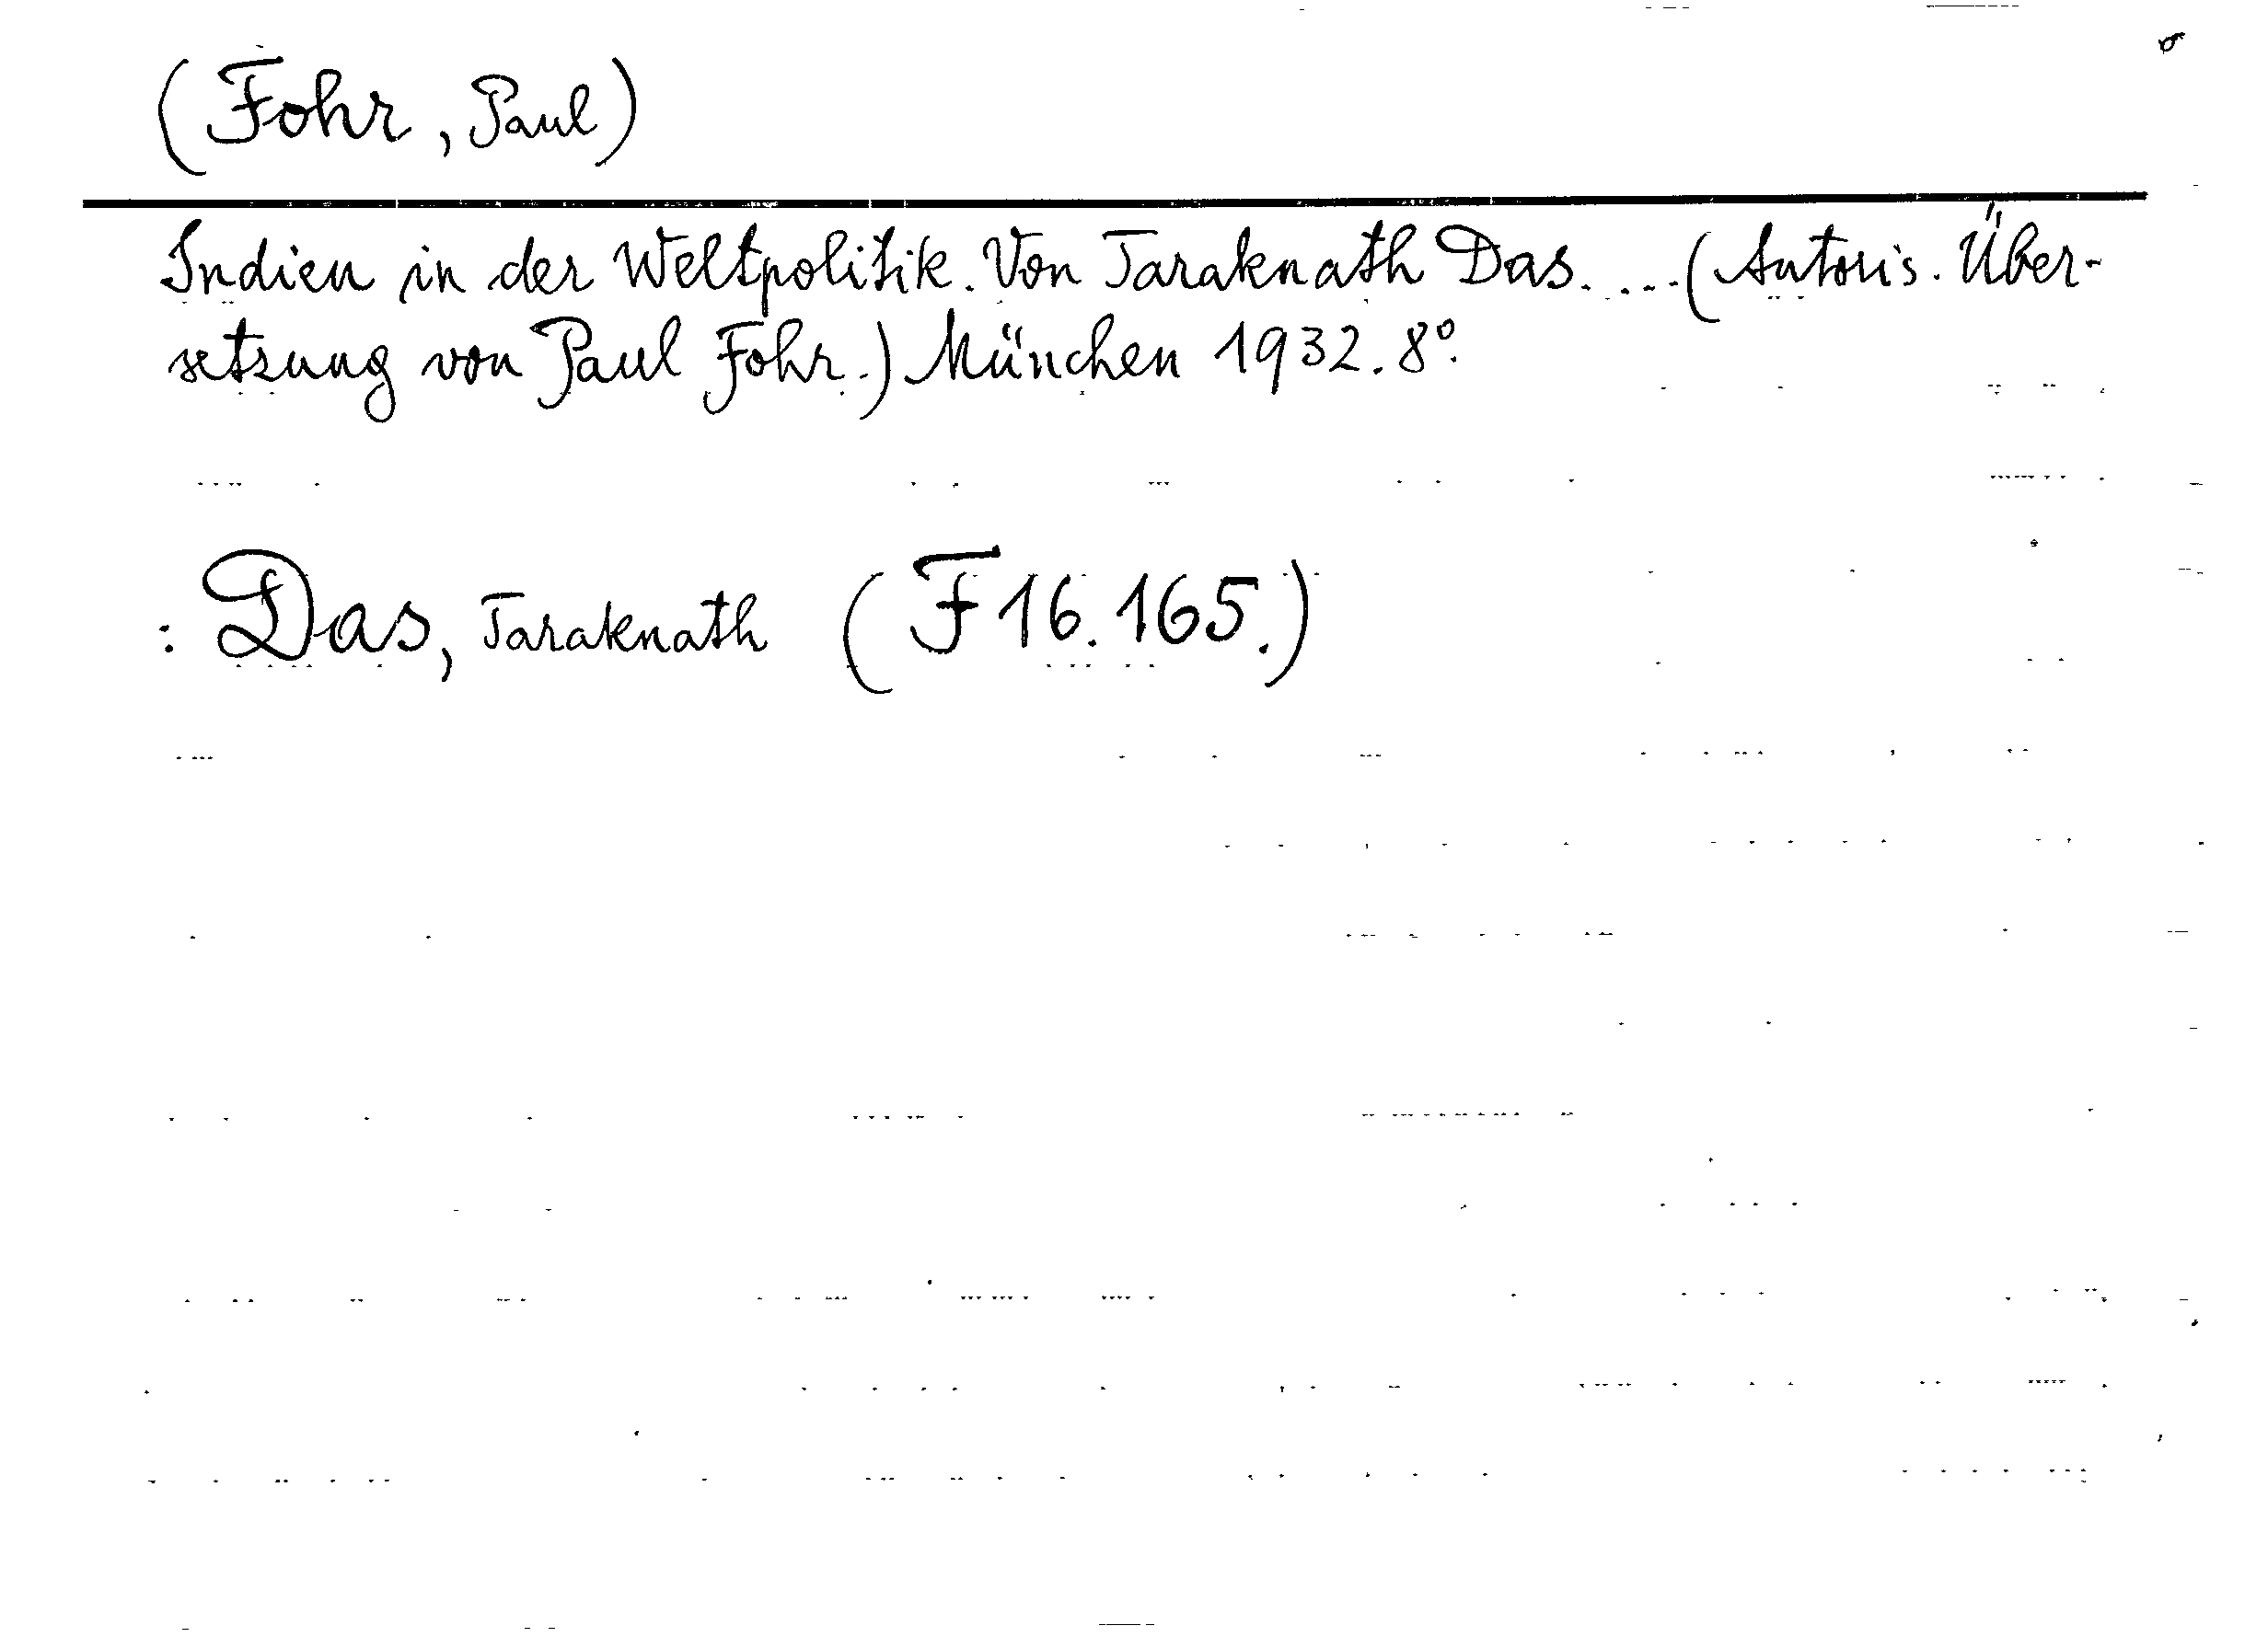 (Fohr, Paul)
Indien in der Weltpolitik. Von Taraknath Das. ... (Autoris. Über-
setzung von Paul Fohr.) München 1932. 8°.
: Das, Taraknath (F 16.165.)